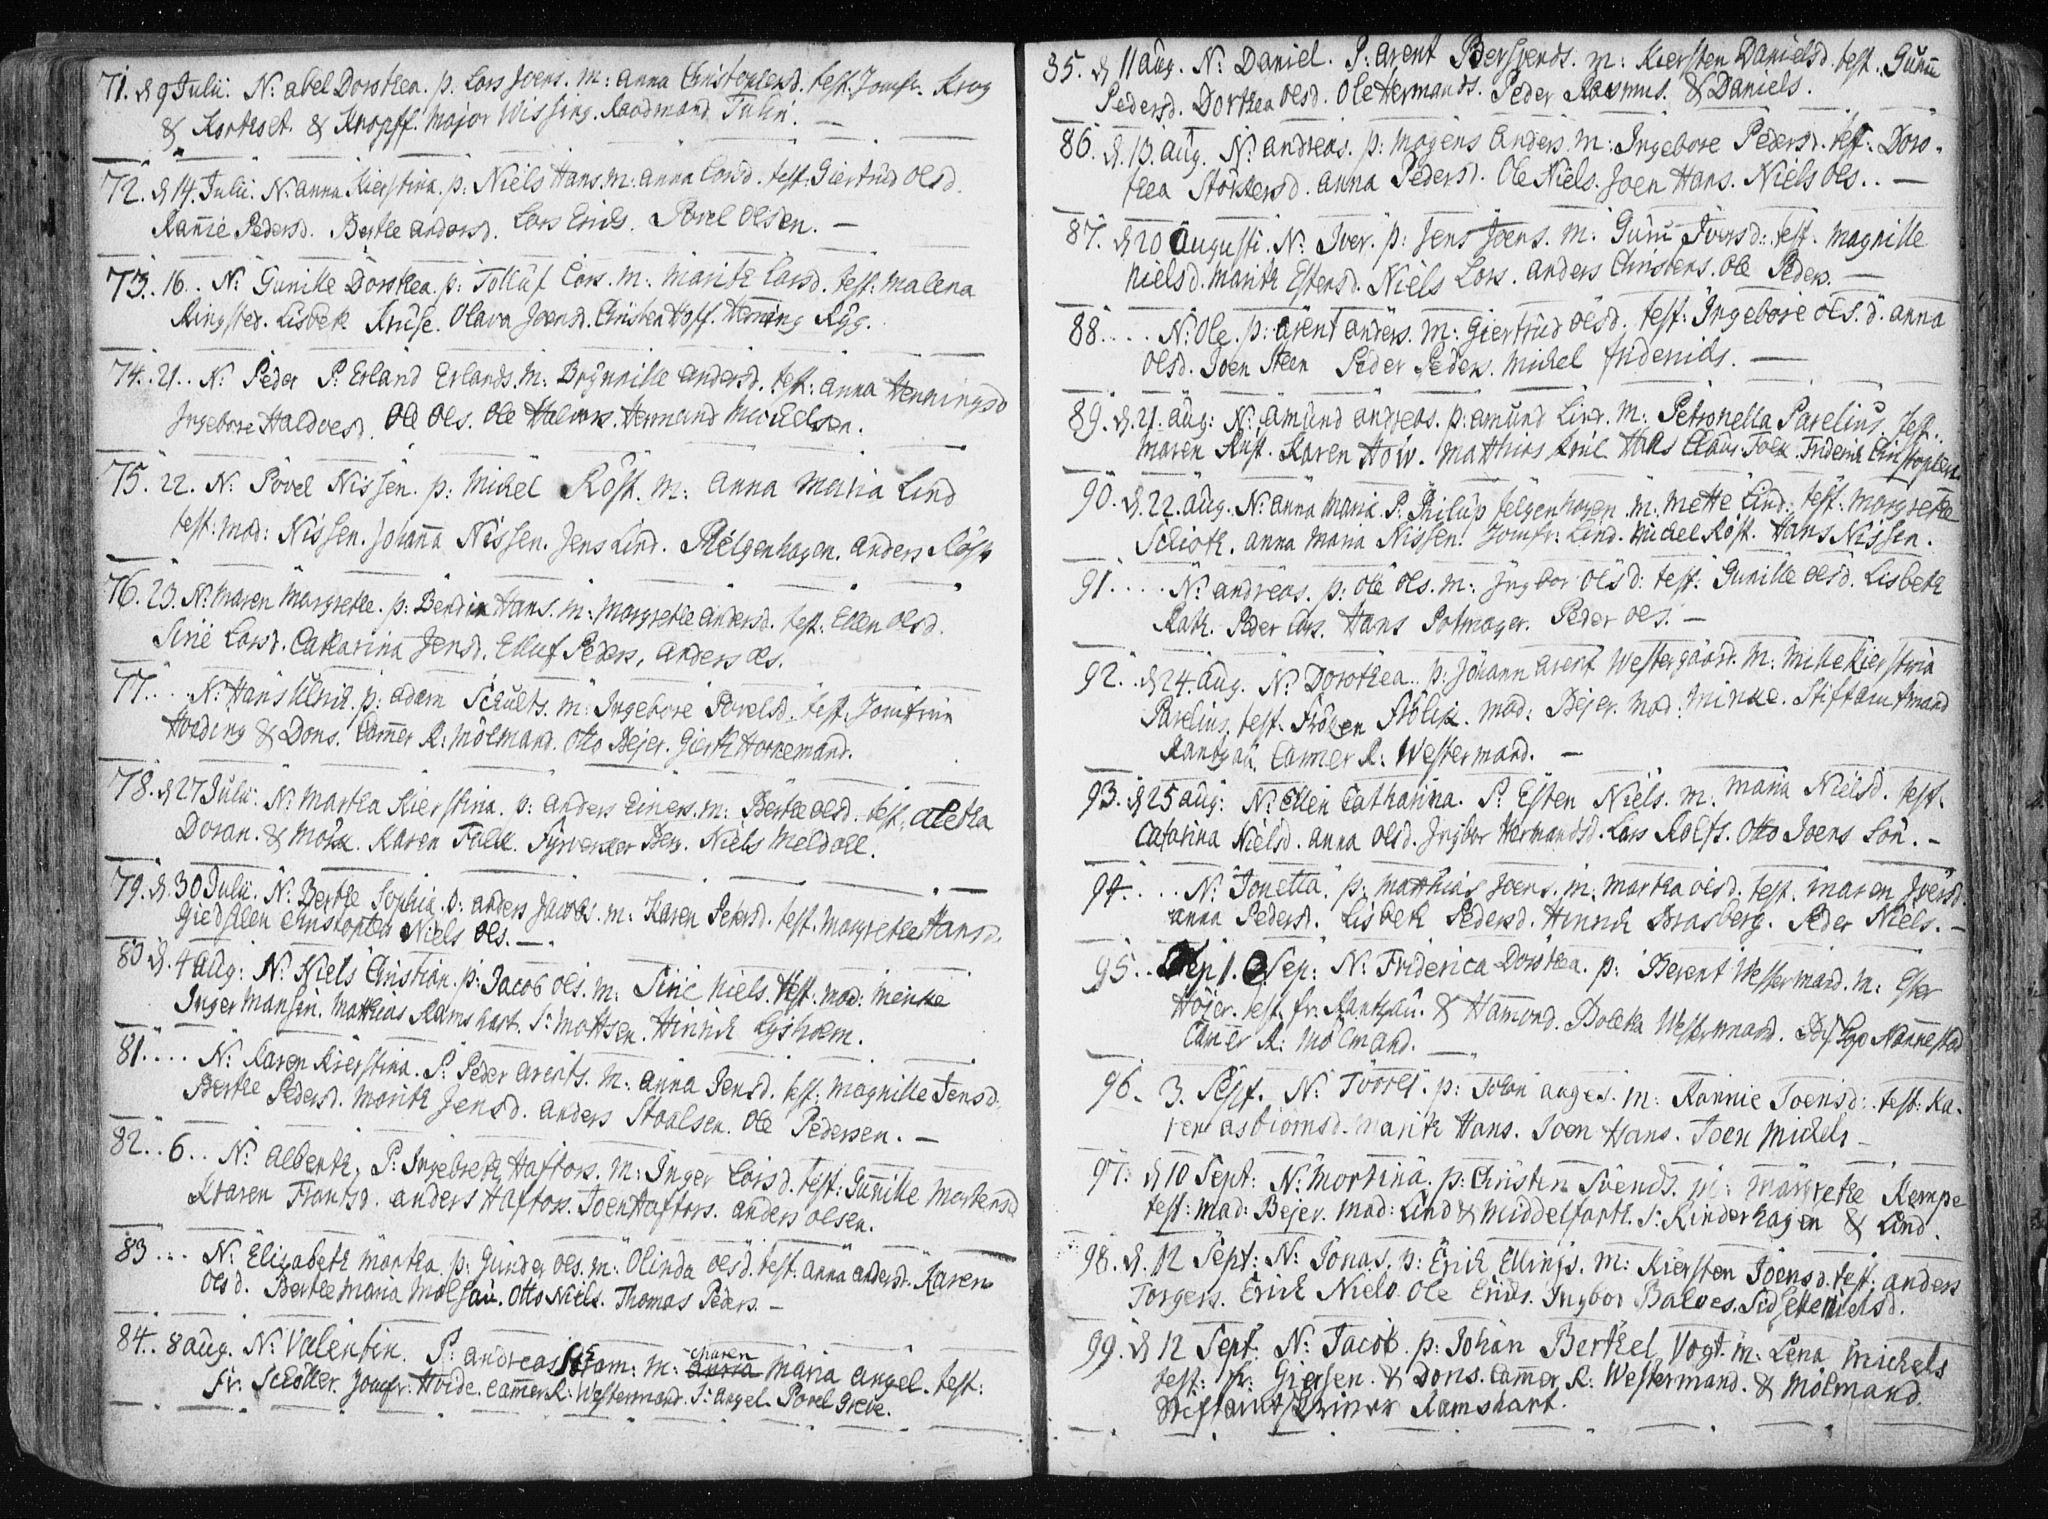 71. d 9 Julii. N: abel Dorothea. p. Lars Joens. m: anna Christophersd. test. Jomfr. Krog
& Kortset. & Kropff. Major Wissing. Raadmand Julin. —
72. d 14. Julii. N: anna Kierstina. p: Niels Hans. m: anna Larsd. test: Giertrud olsd.
Rannie Pedersd. Berthe andersd. Lars Erichs. Povel Olsen. —
73. 16.. N: Gunille Dorothea. p: Tolluf Lars. m. Marith Larsd. test: malena
Ringsted. Lisbeth Kruse. Olava Joensd. Christen Hoff. Henning Rÿg.
74. 21.. N: Peder P: Erland Erlands. M: Brÿnnille andersd. test: anna Henningsd
Ingebore Haldoesd. Ole Ols. Ole Halvors. Hermand Michelsen.
75. 22. N: Povel Nissen. p: Michel Röst. m: anna Maria Lind
test: mad: Nissen. Johanna Nissen. Jens Lind. P: Helgenhagen. anders Röst
76. 23. N: maren margrethe. p: Bendix Hans. m: margrethe andersd. test: Ellen olsd.
Sirie Larsd. Catharina Jensd. Elluf Peders, anders ols.
77... N: Hans Ulrich. p: adam Schults. m: Ingebore Povelsd. test. Jomfruer
Hveding & Dons. Cammer R: Mölmand. Otto Bejer. Gierth Hornemand.
78. d 27 Julii. N: Martha Kierstina. p: anders Einers. m: Berthe olsd. test: aletha
Doran. & Mörk. Karen Falk. Fÿrverker Berg. Niels Meldall.
79. d. 30 Julii. N: Berthe Sophia. p: anders Jacobs. m: Karen Pedersd. test. margrethe Hansd.
Giedsken Christopher Niels ols. —
80 d. 4 aug: N: Niels Christian. p: Jacob ols. m: Sirie Niels. test: mad: meinke
Inger Mansen. Mathias Ramshart. S: Mattsen. Hinrich Lÿsholm.
81.... N: Karen Kierstina. P: Peder arents. m: anna Jensd. test: magnille Jensd.
Berthe Pedersd. Marith Jensd. anders Staalsen. Ole Pedersen. —
82.. 6.. N: alberth. P: Ingebreth Haftors. M: Inger Larsd. test: Gunnille Mortensd
Karen Frantsd. anders Haftors. Joen Haftors. anders olsen.
83... N: Elizabeth martha. p: Gunder ols. m: Olinda olsd. test: anna andersd. Karen
Ols d. Berthe Maria Molsau. Otto Niels. Thomas Peders. —
84.. 8 aug. N: Valentin. P: andreas Stam: m: maren maria angel. test:
fr: Schöller. Jomfr: Hvide. Cammer R: Westermand. S: angel. Povel Greve.
85. d 11 aug. N: Daniel. P: arent Bersvends. m: Kiersten Danielsd. test. Gunni
Pedersd. Dorthea olsd. Ole Hermands. Peder Rasmus. & Daniels.
86. d. 13. aug. N: andreas. p: mogens anders. m: Ingebore Pedersd. test: Doro-
thea Störkersd. anna Pedersd. Ole Niels. Joen Hans. Niels Ols.. —
87. d 20 augusti. N: Iver. p: Jens Joens. m: Guru Iversd: test. magnille
Nielsd. Marith Estensd. Niels Lars. anders Christens. Ole Peders. —
88.... N: Ole. p: arent anders. m: Giertrud olsd. test: Ingebore ols. d. anna
olsd. Joen Steen Peder Peders. Michel friderichs. —
89. d. 21. aug: N: amund andreas. p: amund Lind. m: Petronella Parelius. test..
Maren Rust. Karen Höw. Matthias Kril. Hans Claus Folk. Friderich Christopher
90. d. 22. aug. N: anna maria. P. Philip felgenhagen. m. Mette Lind. test: margrethe
Schiöth. anna maria Nissen. Jomfr: Lind. Michel Röst. Hans Nissen.
91.... N: andreas. p: Ole Ols. m: Ingbor olsd: test: Gunille olsd. Lisbeth
Rath. Peder Lars. Hans Potmager. Peder ols. —
92.. d 24. aug. N: Dorothea. p: Johann arent Westergaard. M: Mille Kierstina
Parelius. test. Frölen Frölich. mad: Bejer. mad: minke. Stiftamtmand
Rantzau. Cammer R: Westermand. —
93. d 25 aug: N: Ellen Catharina. P: Esten Niels. m. maria Nielsd. test.
Catarina Nielsd. anna olsd. Ingbor Hermandsd. Lars Rolfs. Otto Joens Sön. —
94.... N: Jonetta. p: matthias Joens. m: martha olsd. test. maren Iversd.
anna Pedersd. Lisbeth Pedersd. Hinrich Brasberg. Peder Niels. —
95... 1. Sep: N: Friderica Dorothea. p: Berent Westermand. m: Ester
Höjer. test. fr: Rantzau. & Hammond. Boletha Westermand. Bishop Nannestad
Cammer R: Mölmand. —
96. 3. Sept. N: Tÿorrel. p: John auges. m: Rannie Joensd: test: Ka-
ren asbiörnsd. marith Hans. Joen Hans. Joen Michels —
97. d 10 Sept: N: Mortina. p: Christen Svends. m: margrethe Kempe
test: mad: Bejer. mad: Lind & Middelfarth. S: Rinderhagen & Lind.
98. d. 12 Sept: N: Jonas. p: Erich Ellings. m: Kiersten Joensd. test: anders
Torgers. Erich Niels. Ole Erichs. Ingbor Baloes. Sidselle Nielsd.
99. d 12 Sept: N: Jacob. p: Johan Berthel Vogt. m: Lena Michels
test: fr: Giersen. & Dons. Cammer R: Westermand. & Mölmand.
Stiftamtskriver Ramshart.